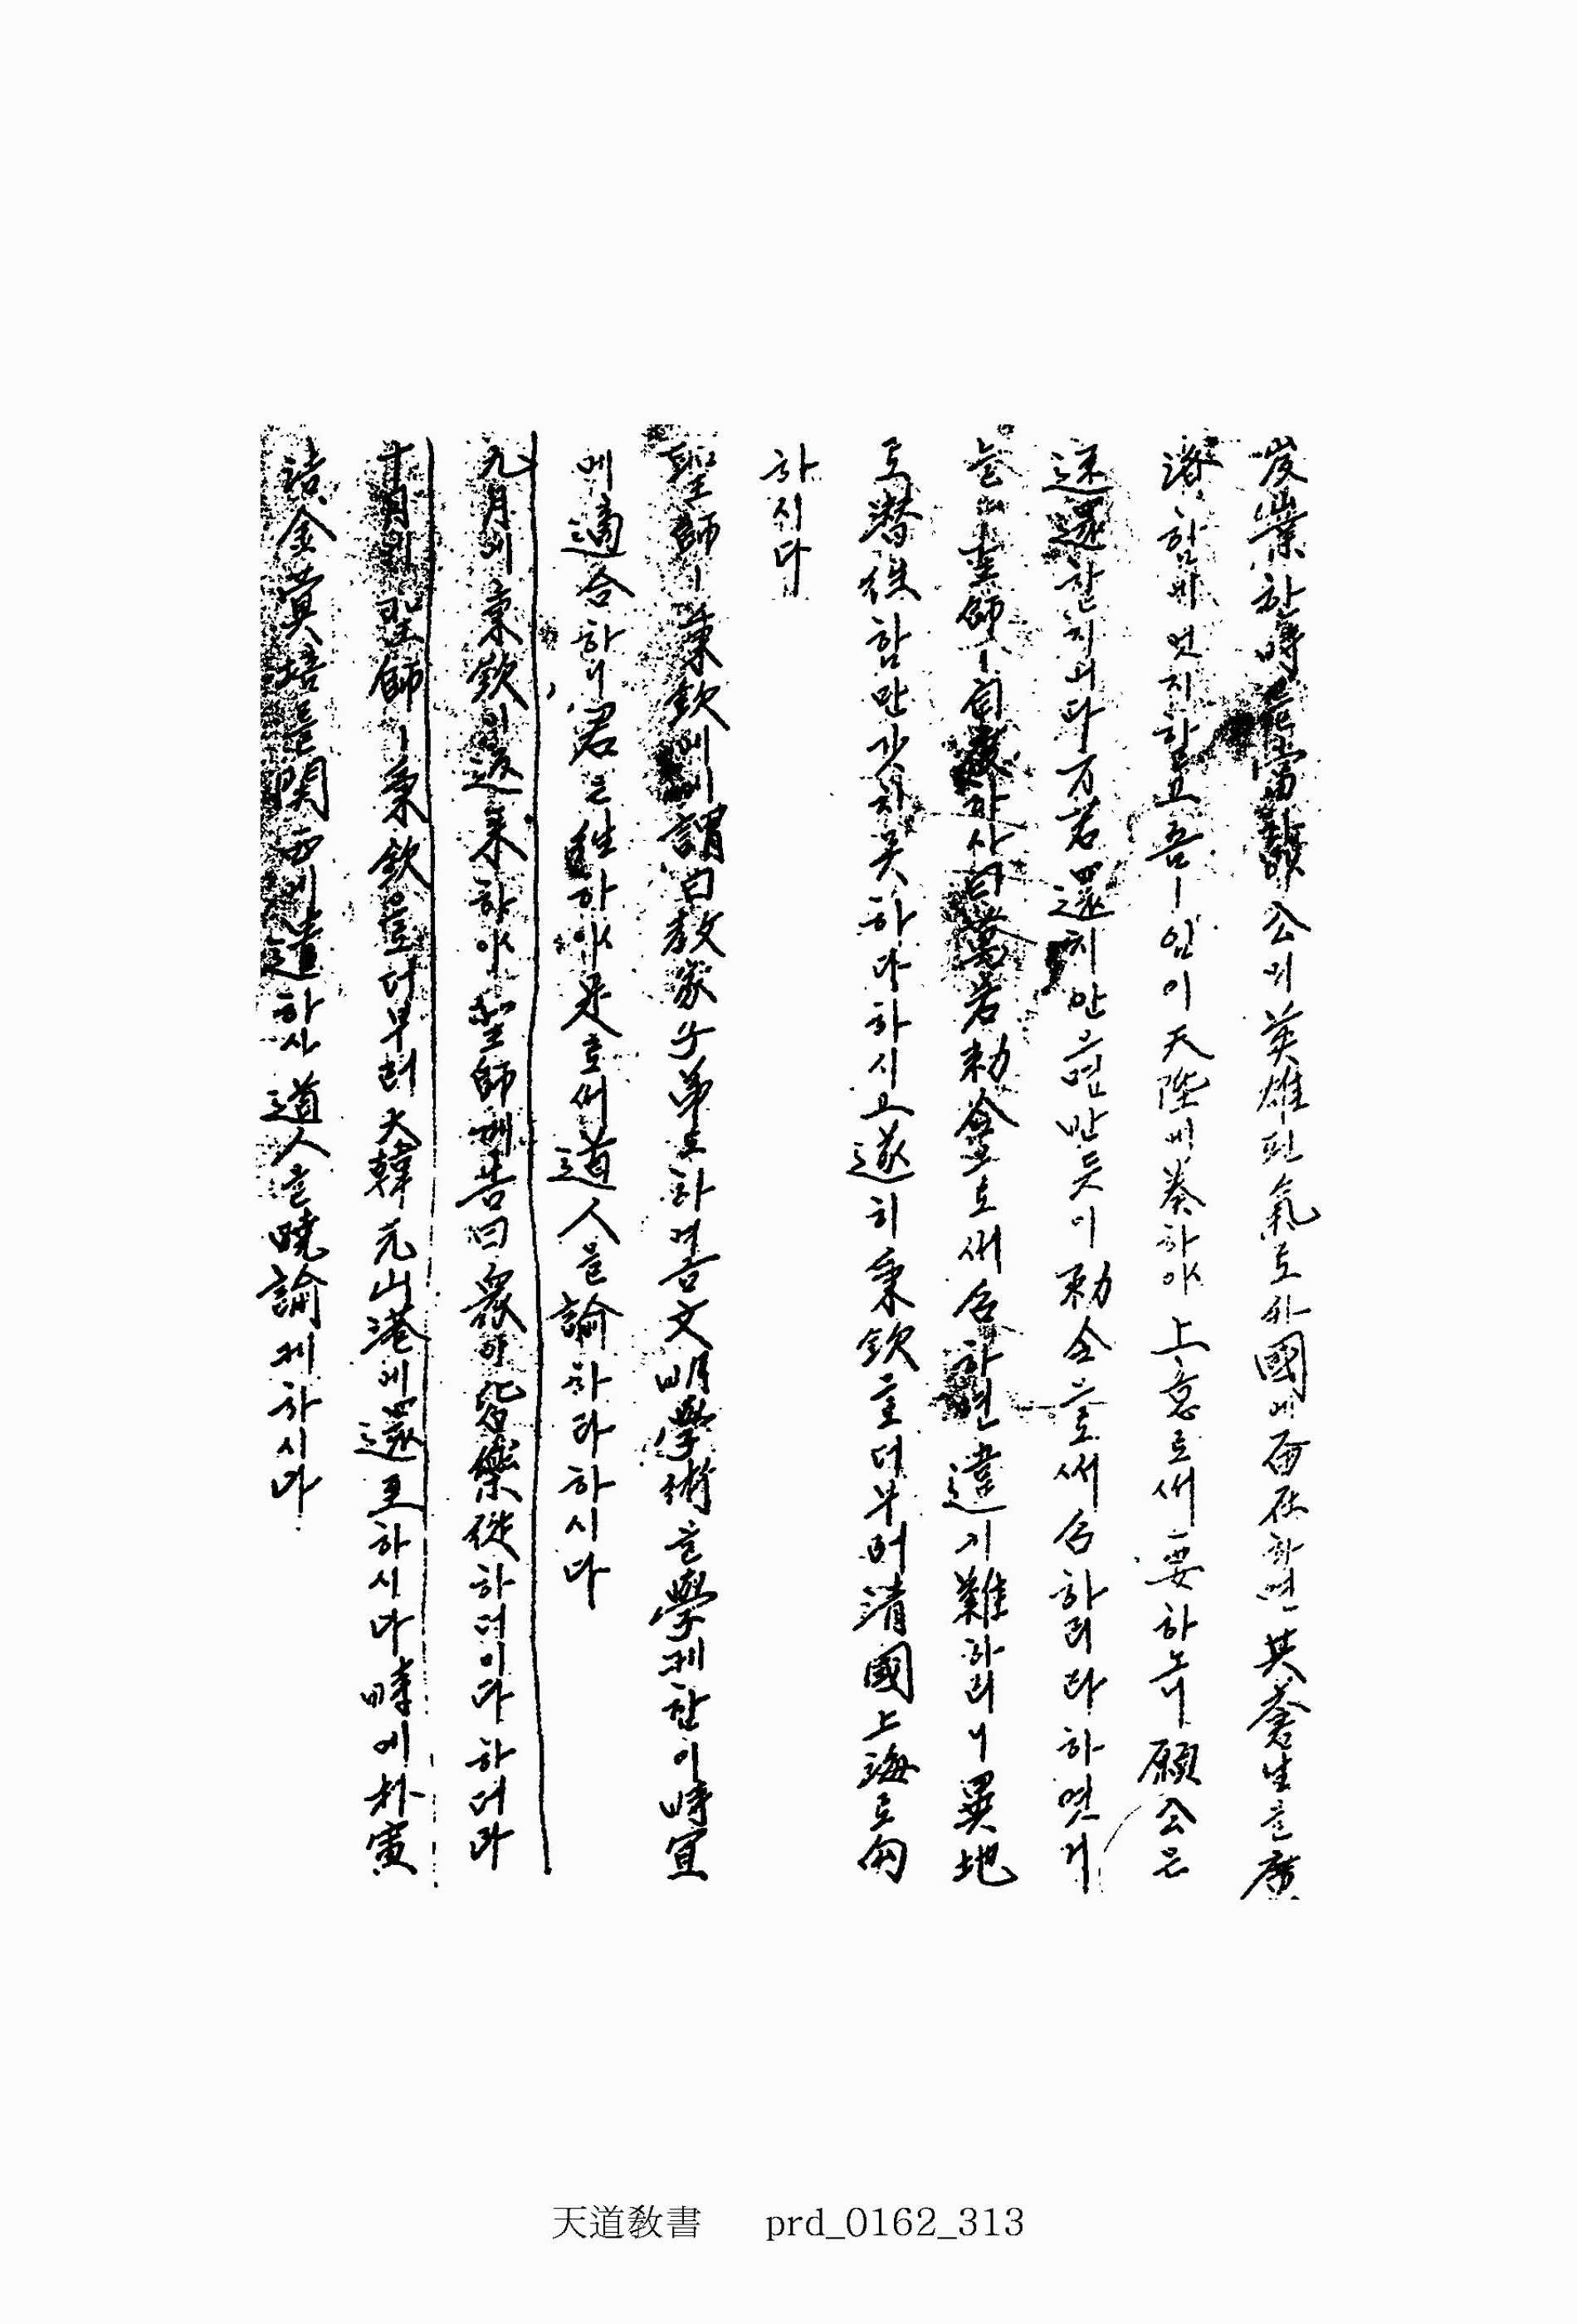 岌業한 時를 當하야 公의 英雄되 氣로 外國에 留在하면 其 蒼生을 廣
濟함바 엇지할고 吾ㅣ 임이 天陛에 奏하야 上意로써 要하노니 願公은
速還할지어다 万若 還치 안으면 반듯이 勅令으로써 召하리라 하엿거
늘 聖師ㅣ 自 하사 曰 萬若 勅令으로써 召하면 違기 難하리니 異地
로 潛往함만 갓지 못하다 하시고 遂히 秉欽으로 더부러 淸國 上海로 向
하시다
聖師ㅣ 秉欽에게 謂曰 敎家子弟로 하여금 文明學術을 學케 함이 時宜
에 適合하니 君은 往하야 是로써 道人을 諭하라 하시다
九月에 秉欽이 返來하야 聖師께 告曰 衆이 皆樂從하더이다 하더라
十月에 聖師ㅣ 秉欽으로 더부러 大韓 元山港에 還至하시다 時에 朴寅
浩 金蓂培를 關西에 遣하사 道人을 曉諭케 하시다
天道敎書 prd_0162_313